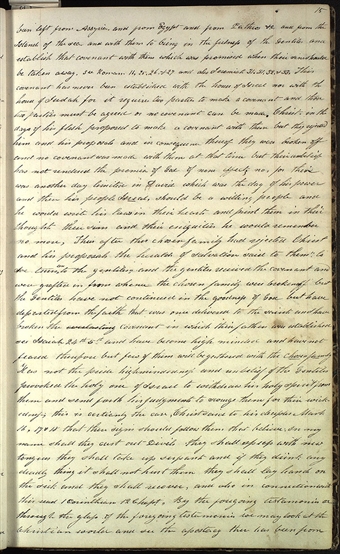 15
been left from Assyria and from Egypt and from Pathros &c and from the
Islands of the sea and with them to bring in the fulness of the Gentiles and
establish that covenant with them which was promised when their sins should
be taken away. see Romans 11, 25, 26, & 27 and also Jeremiah 31, 31, 32, & 33, This
covenant has never been established with the house of Israel nor with the
house of Judah for it requires two parties to make a covenant and those
two parties must be agreed or no covenant can be made. Christ in the
days of his flesh proposed to make a covenant with them but they rejected
him and his proposals and in consequence thereof they were broken off
and no covenant was made with them at that time but their unbelief
has not rendered the promise of God of none effect: no, for there
was another day limited in David which was the day of his power
and then his people Israel, should be a willing people and
he would write his laws in their hearts and print them in their
thoughts their sins and their iniquities he would remember
no more, Thus after this chosen family had rejected Christ
and his proposals the heralds of salvation said to them; lo
we turn to the gentiles, and the gentiles received the covenant and
were grafted in from whence the chosen family were broken off but
the Gentiles have not continued in the goodness of God but have
departed from the faith that was once delivered to the saints and have
broken the everlasting covenant in which their fathers were established
see Isaiah 24th 5th and have become high minded and have not
feared therefore but few of them will be gathered with the chosen family
Has not the pride highmindedness and unbelief of the Gentiles
provoked the holy one of Israel to withdraw his holy spirit from
them and send forth his judgments to scourge them for their wick-
edness; this is certainly the case, Christ said to his disciples Mark
16, 17 & 18 that these signs should follow them that believe. In my
name shall they cast out Devils they shall speak with new
tongues they shall take up serpants and if they drink any
deadly thing it shall not hurt them they shall lay hands on
the sick and they shall recover, and also in connection with
this read 1 Corinthians 12 Chapt. By the foregoing testimonies or
through the glass of the foregoing testimonies we may look at the
Christian world and see the apostacy there has been from